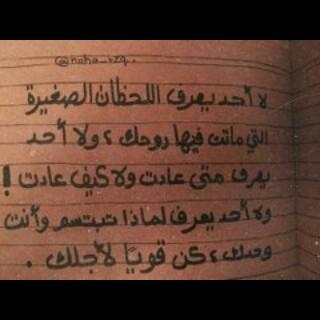 @noha_rzq..
لا أحد يعرف اللحظات الصغيرة
التي ماتت فيها روحك ، ولا أحد
يعرف متى عادت ولا كيف عادت !
ولا أحد يعرف لماذا تبتسم وأنت
وحدك ، كن قويًا لأجلك .